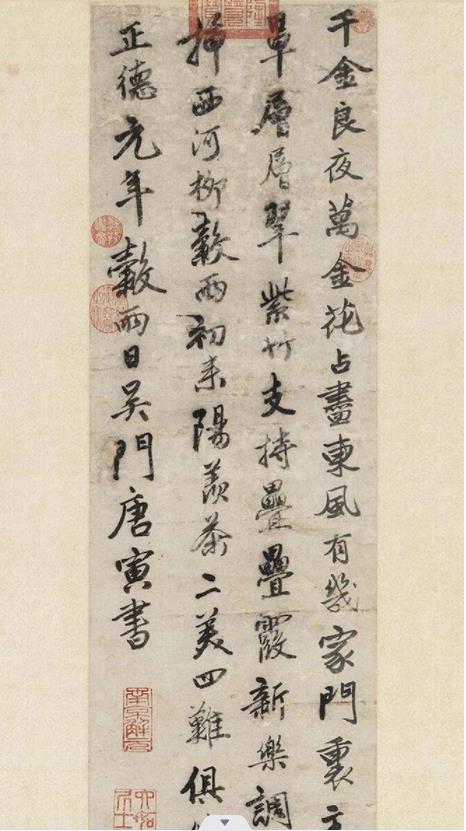 千金良夜萬金花占盡東風有幾家門裏
罩層層翠紫竹支持疊疊霞新樂調
插西河柳穀雨初来陽羨茶二美四難俱
正德元年穀雨日吳門唐寅書
南京解元
六如居士